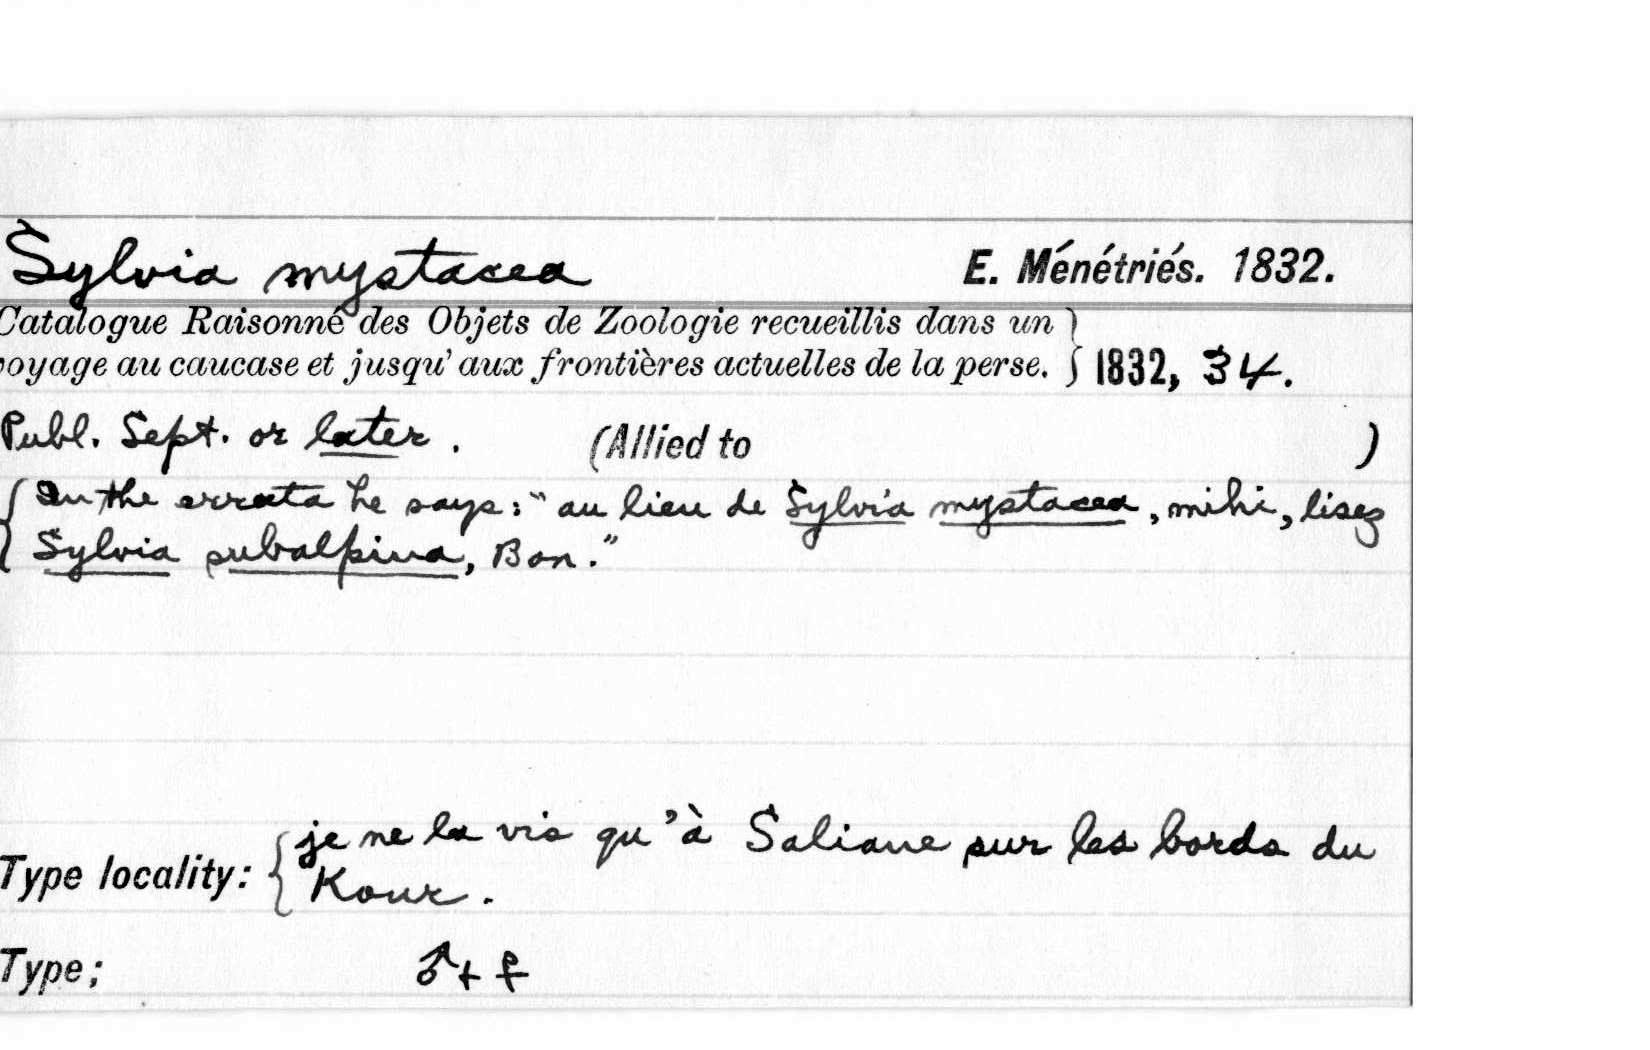 Sylvia mystacea E. Ménétriés. 1832.
Catalogue Raisonné des Objets de Zoologie recueillis dans un
voyage au caucase et jusqu'aux frontières actuelles de la perse. } 1832, 34.
Publ. Sept. or later. (Allied to )
{ In the errata he says: "au lieu de Sylvia mystacea, mihi, lisez
Sylvia subalpina, Bon."
Type locality: { je ne la vis qu'à Saliane sur les bords du
Kour.
Type; ♂ + ♀